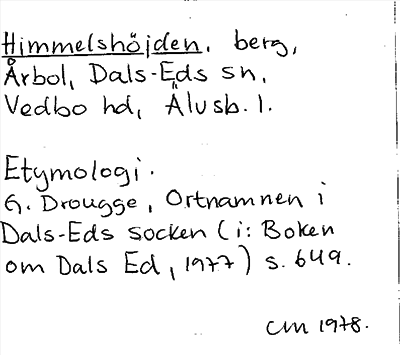 Himmelshöjden, berg,
Årbol, Dals-Eds sn,
Vedbo hd, Älvsb. l.
Etymologi.
G. Drougge, Ortnamnen i
Dals-Eds socken (i: Boken
om Dals Ed, 1977) s. 649.
CM 1978.